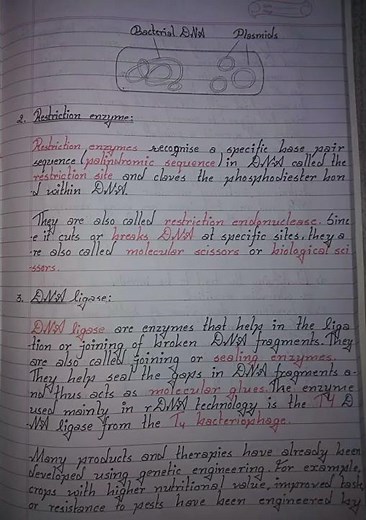 Bacterial DNA Plasmids
2. Restriction enzyme:
Restriction enzymes recognise a specific base pair
sequence (palindromic sequence) in DNA called the
restriction site and claves the phosphodiester bon
-d within DNA.
They are also called restriction endonuclease. Sinc
-e it cuts or breaks DNA at specific sites, they a
-re also called molecular scissors or biological sci
-ssors.
3. DNA ligase:
DNA ligase are enzymes that help in the liga
-tion or joining of broken DNA fragments. They
are also called joining or sealing enzymes.
They help seal the gaps in DNA fragments a-
nd thus acts as molecular glues. The enzyme
used mainly in rDNA technology is the T4 D
-NA ligase from the T4 bacteriophage.
Many products and therapies have already been
developed using genetic engineering. For example,
crops with higher nutritional value, improved taste
or resistance to pests have been engineered by